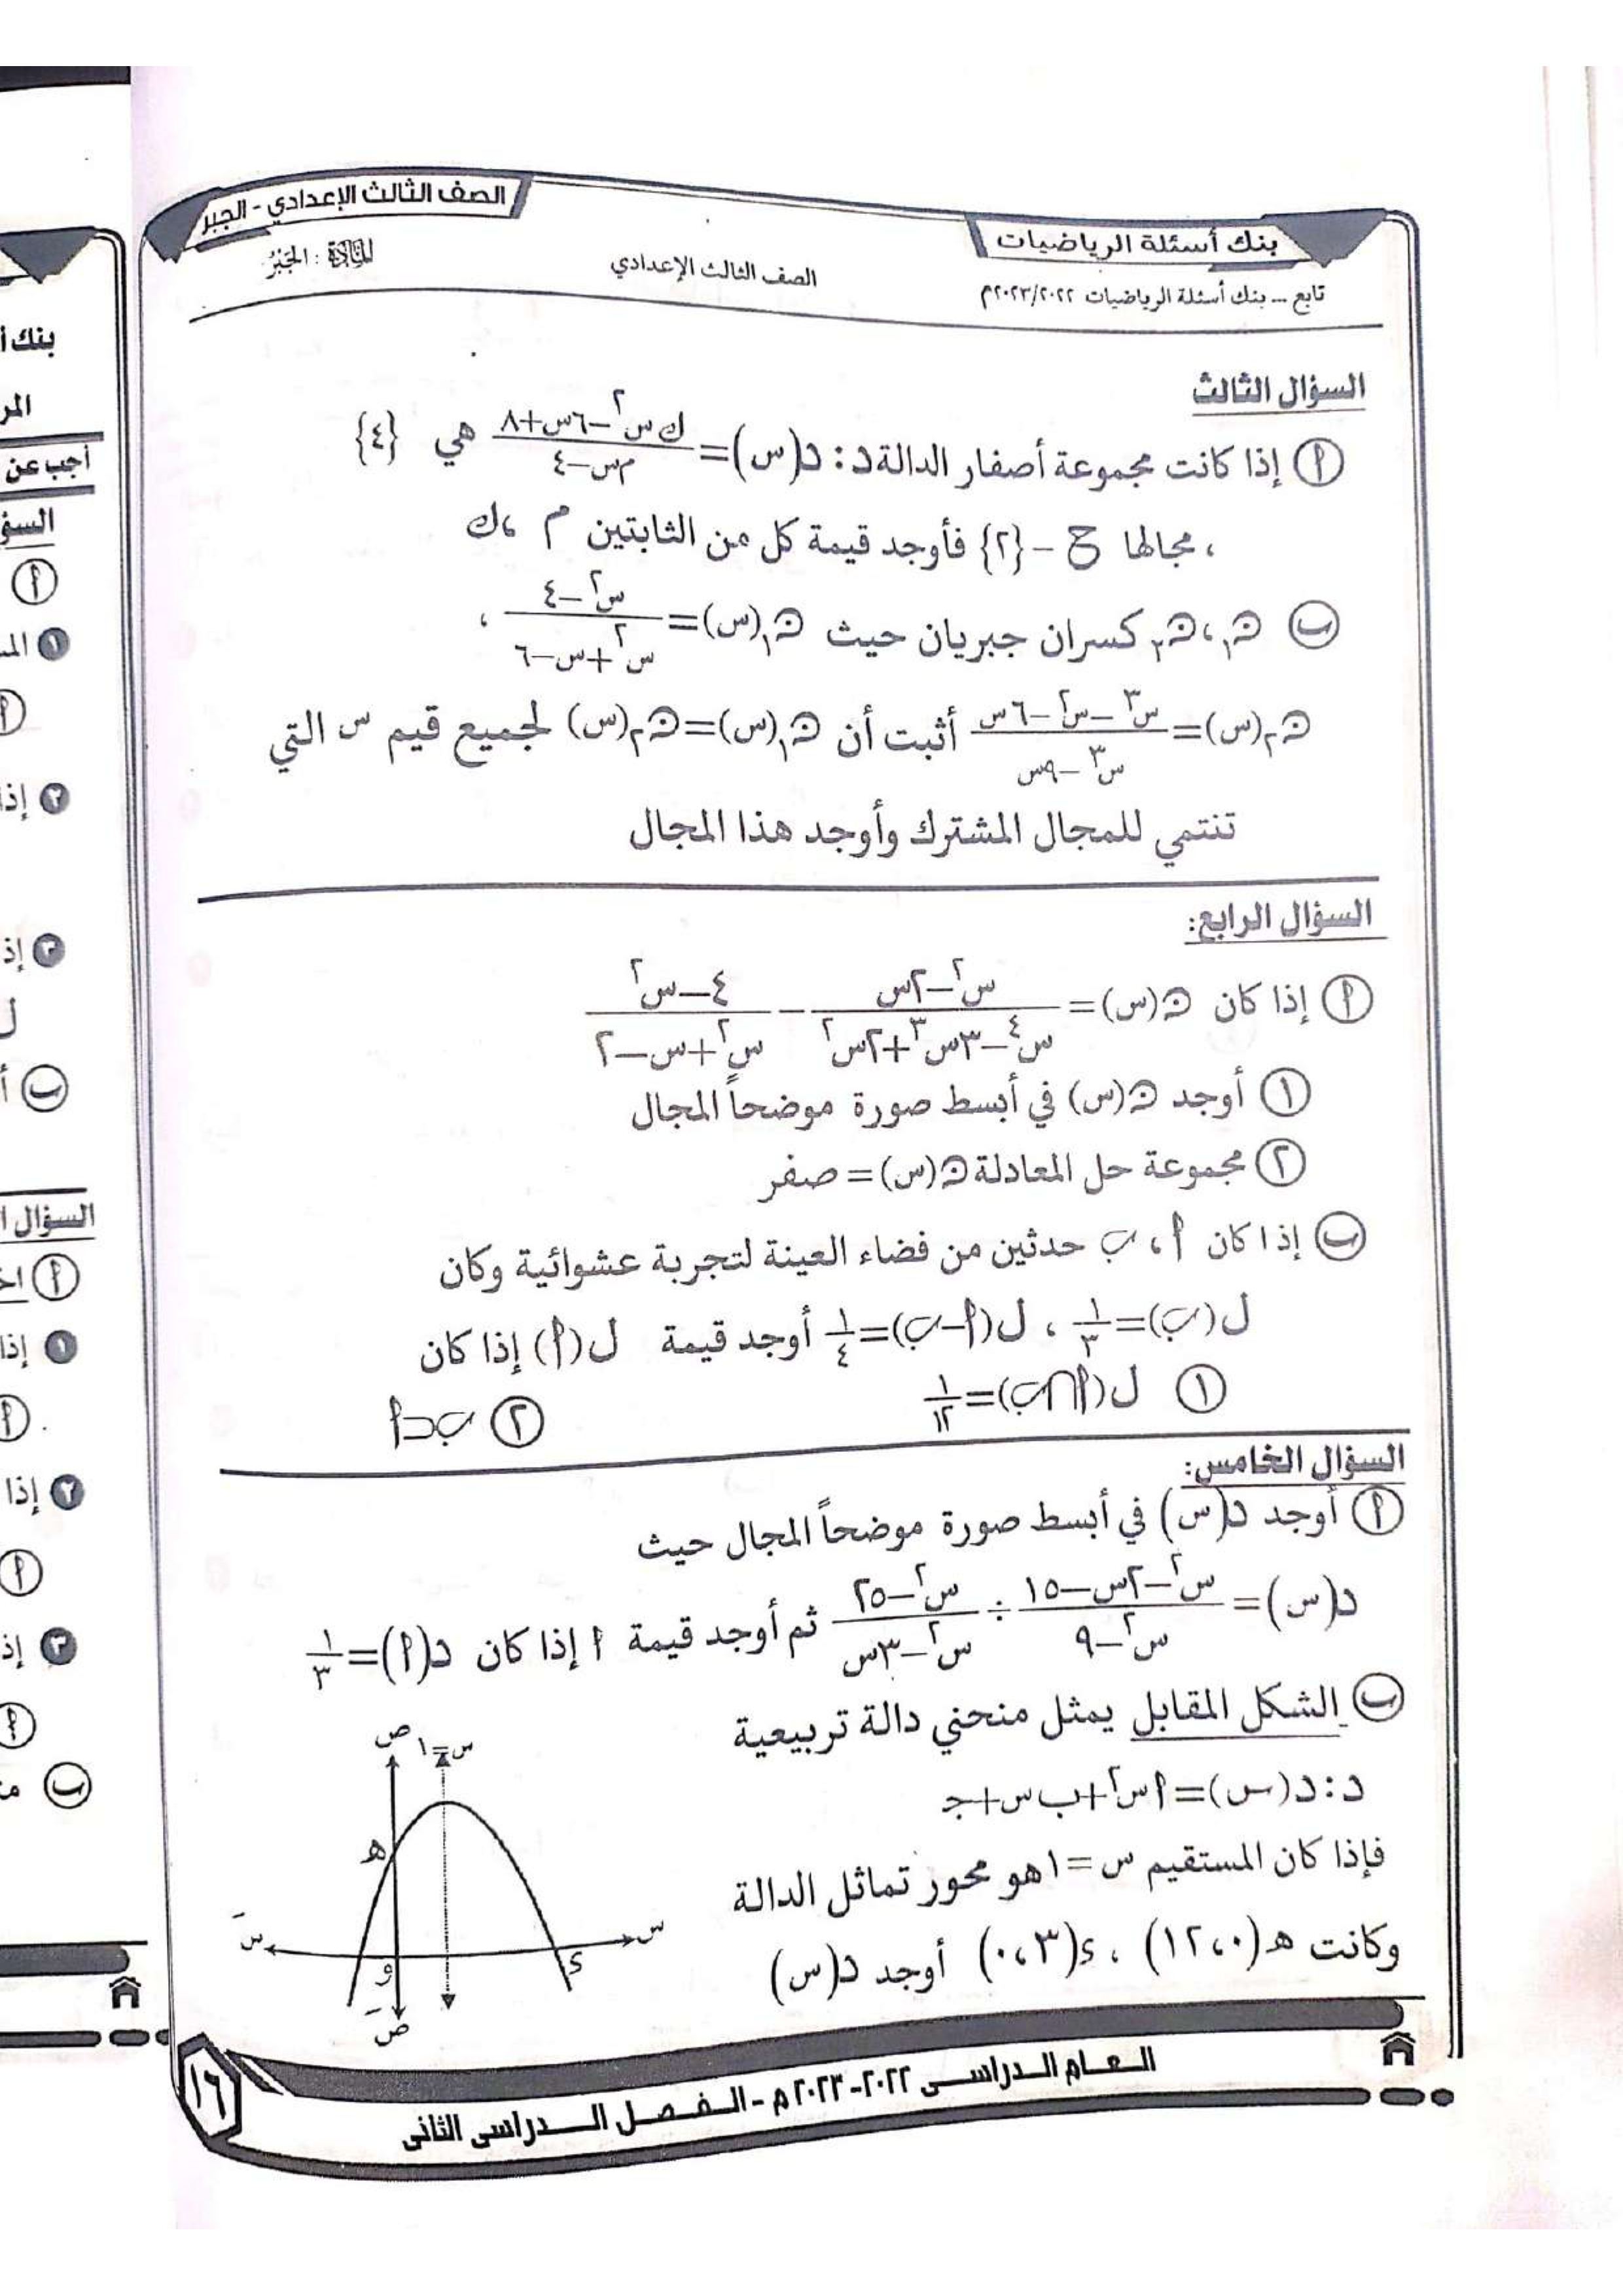 بنك أسئلة الرياضيات
الصف الثالث الإعدادي - الجبر
تابع ... بنك أسئلة الرياضيات ٢٠٢٣/٢٠٢٢م
الصف الثالث الإعدادي
المادة : الجبر
السؤال الثالث
أ إذا كانت مجموعة أصفار الدالة د : د(س) = (ك س² - ٦س + ٨)/(م س - ٤) هي {٤}
، مجالها ح - {٢} فأوجد قيمة كل من الثابتين م ، ك
ب ن₁ ، ن₂ كسران جبريان حيث ن₁(س) = (س² - ٤)/(س² + س - ٦) ،
ن₂(س) = (س³ - س² - ٦س)/(س³ - ٩س) أثبت أن ن₁(س) = ن₂(س) لجميع قيم س التي
تنتمي للمجال المشترك وأوجد هذا المجال
السؤال الرابع:
أ إذا كان ن(س) = (س² - ٢س)/(س⁴ - ٣س³ + ٢س²) - (٤ - س²)/(س² + س - ٢)
١ أوجد ن(س) في أبسط صورة موضحاً المجال
٢ مجموعة حل المعادلة ن(س) = صفر
ب إذا كان أ ، ب حدثين من فضاء العينة لتجربة عشوائية وكان
ل(ب) = ١/٣ ، ل(أ-ب) = ١/٤ أوجد قيمة ل(أ) إذا كان
١ ل(أ∩ب) = ١/١٢
٢ ب⊂أ
السؤال الخامس:
أ أوجد د(س) في أبسط صورة موضحاً المجال حيث
د(س) = (س² - ٢س - ١٥)/(س² - ٩) ÷ (س² - ٢٥)/(س² - ٣س) ثم أوجد قيمة أ إذا كان د(أ) = ١/٣
ب الشكل المقابل يمثل منحني دالة تربيعية
د : د(س) = أس² + ب س + جـ
فإذا كان المستقيم س = ١ هو محور تماثل الدالة
وكانت هـ(٠، ١٢) ، ء(٣، ٠) أوجد د(س)
ص
س=١
هـ
سَ
س
و
ء
صَ
العام الدراسى ٢٠٢٢-٢٠٢٣م - الفصل الدراسى الثانى
١٦
بنك أ
المر
أجب عن
السؤ
أ
١ الم
أ
٢ إذا
٣ إذ
ل
ب أ
السؤال ا
أ اخ
١ إذا
أ
٢ إذا
أ
٣ إذ
أ
ب